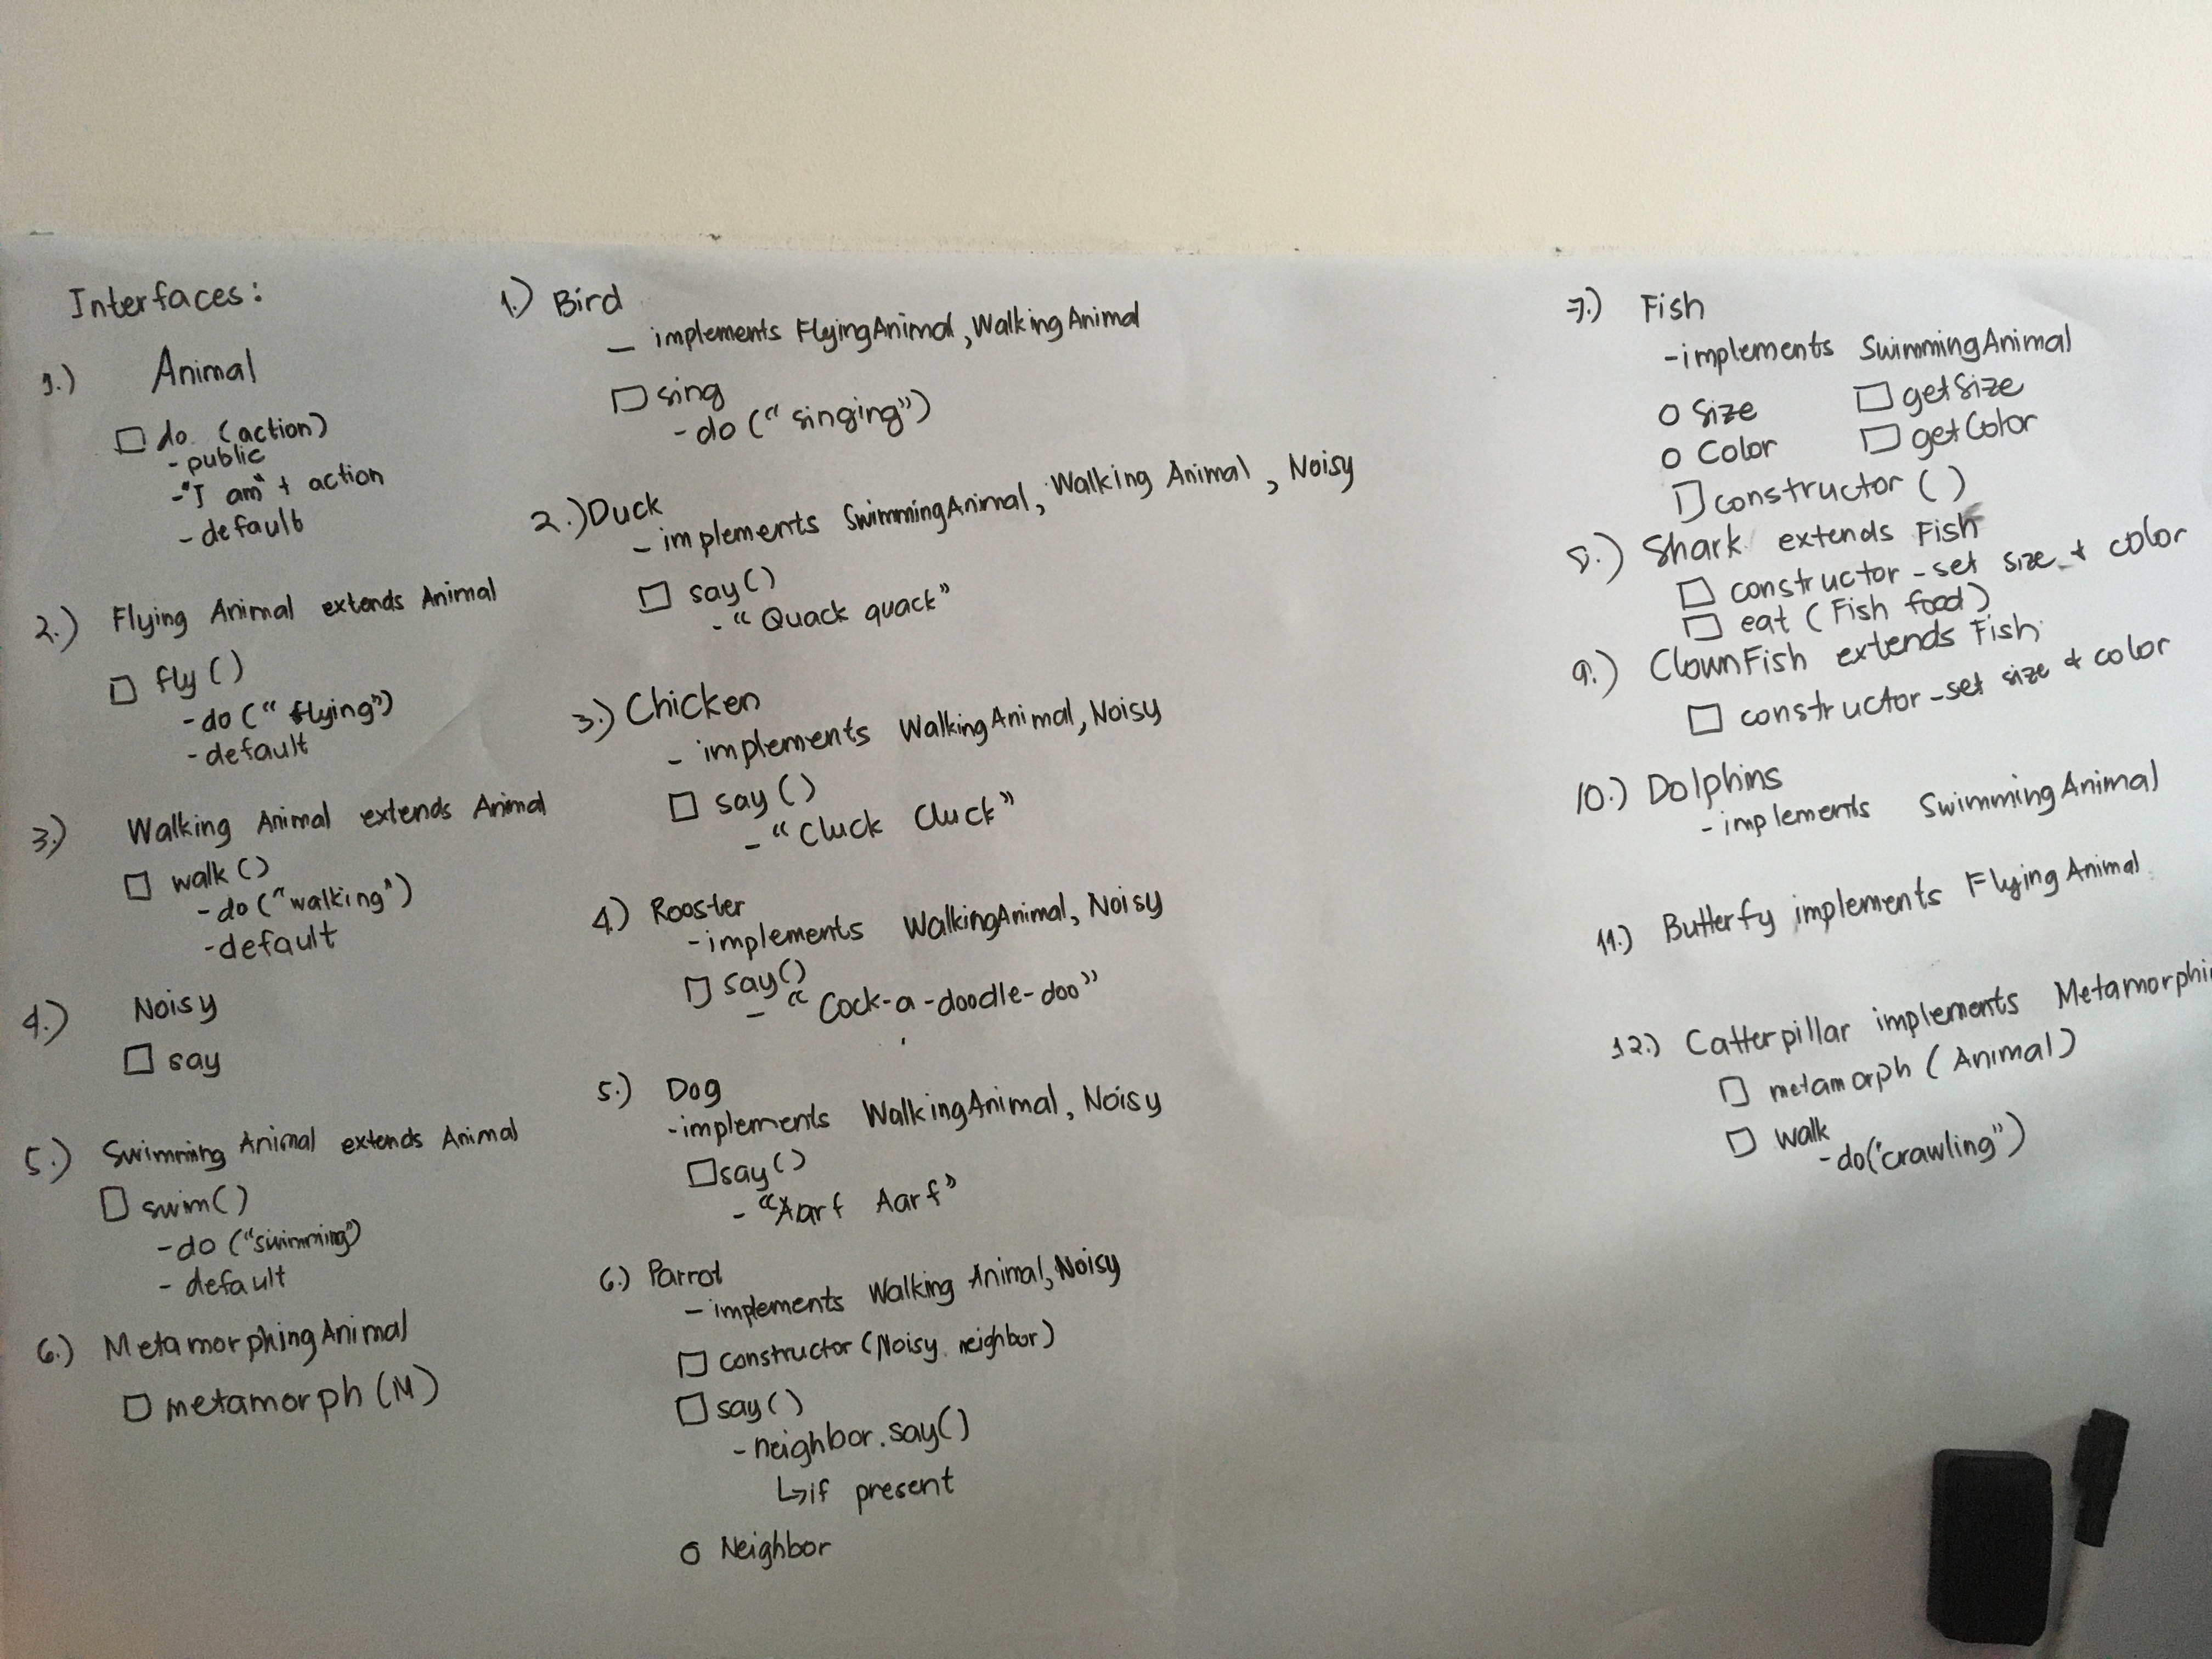 Interfaces:
1.) Animal
do (action)
- public
- "I am" + action
- default
2.) Flying Animal extends Animal
fly ()
- do (" flying")
- default
3.) Walking Animal extends Animal
walk ()
- do ("walking")
- default
4.) Noisy
say
5.) Swimming Animal extends Animal
swim()
- do ("swimming")
- default
6.) MetamorphingAnimal
metamorph (M)
1.) Bird
- implements FlyingAnimal, WalkingAnimal
sing
- do (" singing")
2.) Duck
- implements SwimmingAnimal, Walking Animal, Noisy
say ()
- " Quack quack"
3.) Chicken
- implements WalkingAnimal, Noisy
say ()
- " Cluck Cluck"
4.) Rooster
- implements WalkingAnimal, Noisy
say()
- " Cock-a-doodle-doo"
5.) Dog
- implements WalkingAnimal, Noisy
say()
- "Aarf Aarf"
6.) Parrot
- implements Walking Animal, Noisy
constructor (Noisy neighbor)
say ()
- neighbor.say()
↳ if present
o Neighbor
7.) Fish
- implements SwimmingAnimal
o Size getSize
o Color getColor
constructor ( )
8.) Shark extends Fish
constructor - set size + color
eat ( Fish food )
9.) ClownFish extends Fish
constructor - set size + color
10.) Dolphins
- implements SwimmingAnimal
11.) Butterfy implements FlyingAnimal
12.) Catterpillar implements Metamorphi
metamorph ( Animal )
walk
- do("crawling")